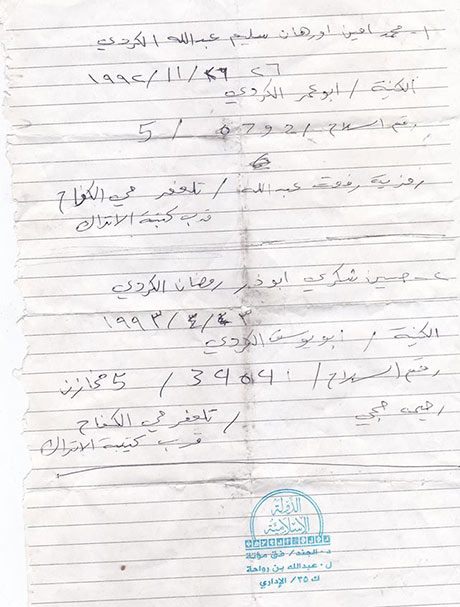 ١- محمد امين اورهان سليم عبدالله الكردي
٢٦ /١١/١٩٩٢
الكنية / ابو عمر الكردي
رقم السلاح / 5 /
رمزية رفعت عبدالله / تلعفر حي الكفاح
قرب كتيبة الاتراك
٢- حسين شكري ابوذر رمضان الكردي
١٩٩٣/
الكنية / ابو يوسف الكردي
رقم السلاح / / 5 مخازن
حجي
/ تلعفر حي الكفاح
قرب كتيبة الاتراك
الدولة
الإسلامية
د.الجند/ فق مؤتة
ل.عبدالله بن رواحة
ك ٣٥/ الإداري